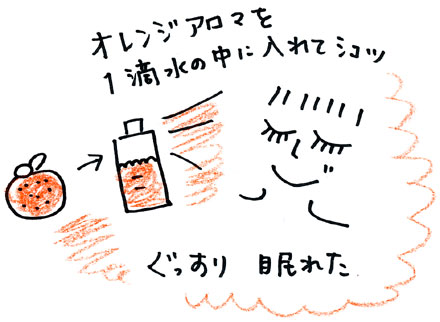 オレンジアロマを
1滴水の中に入れてショッ
ぐっすり 眠れた